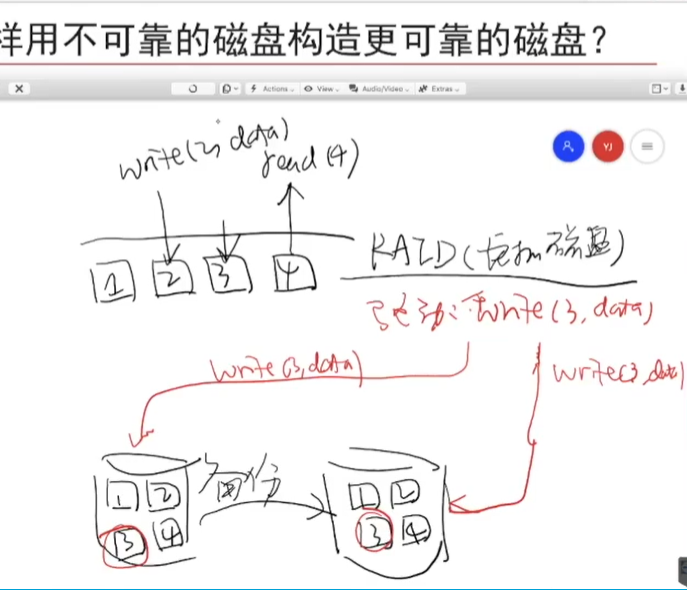 样用不可靠的磁盘构造更可靠的磁盘？
Actions
View
Audio/Video
Extras
YJ
write(2, data)
read(4)
1 2 3 4
RAID(虚拟磁盘)
驱动: write(3, data)
write(3, data)
write(3, data)
1 2
3 4
备份
1 2
3 4